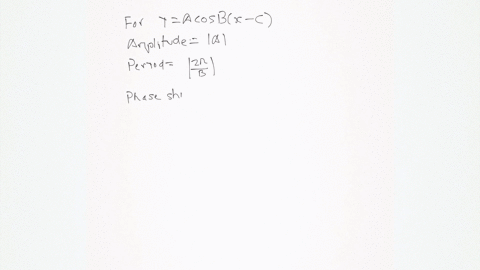 For y=AcosB(x-C)
Amplitude=|A|
Period= |2π/B|
Phase shi